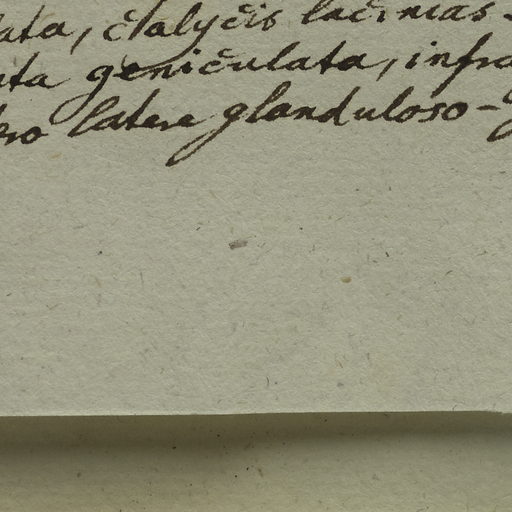 lata, calycis lacinias
ta geniculata, infra
ro latere glanduloso-